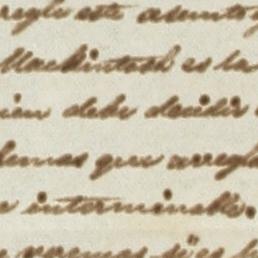 regle este asunto y
Mackintosh es la
ien debe decidir
emos que arregla
interminable.